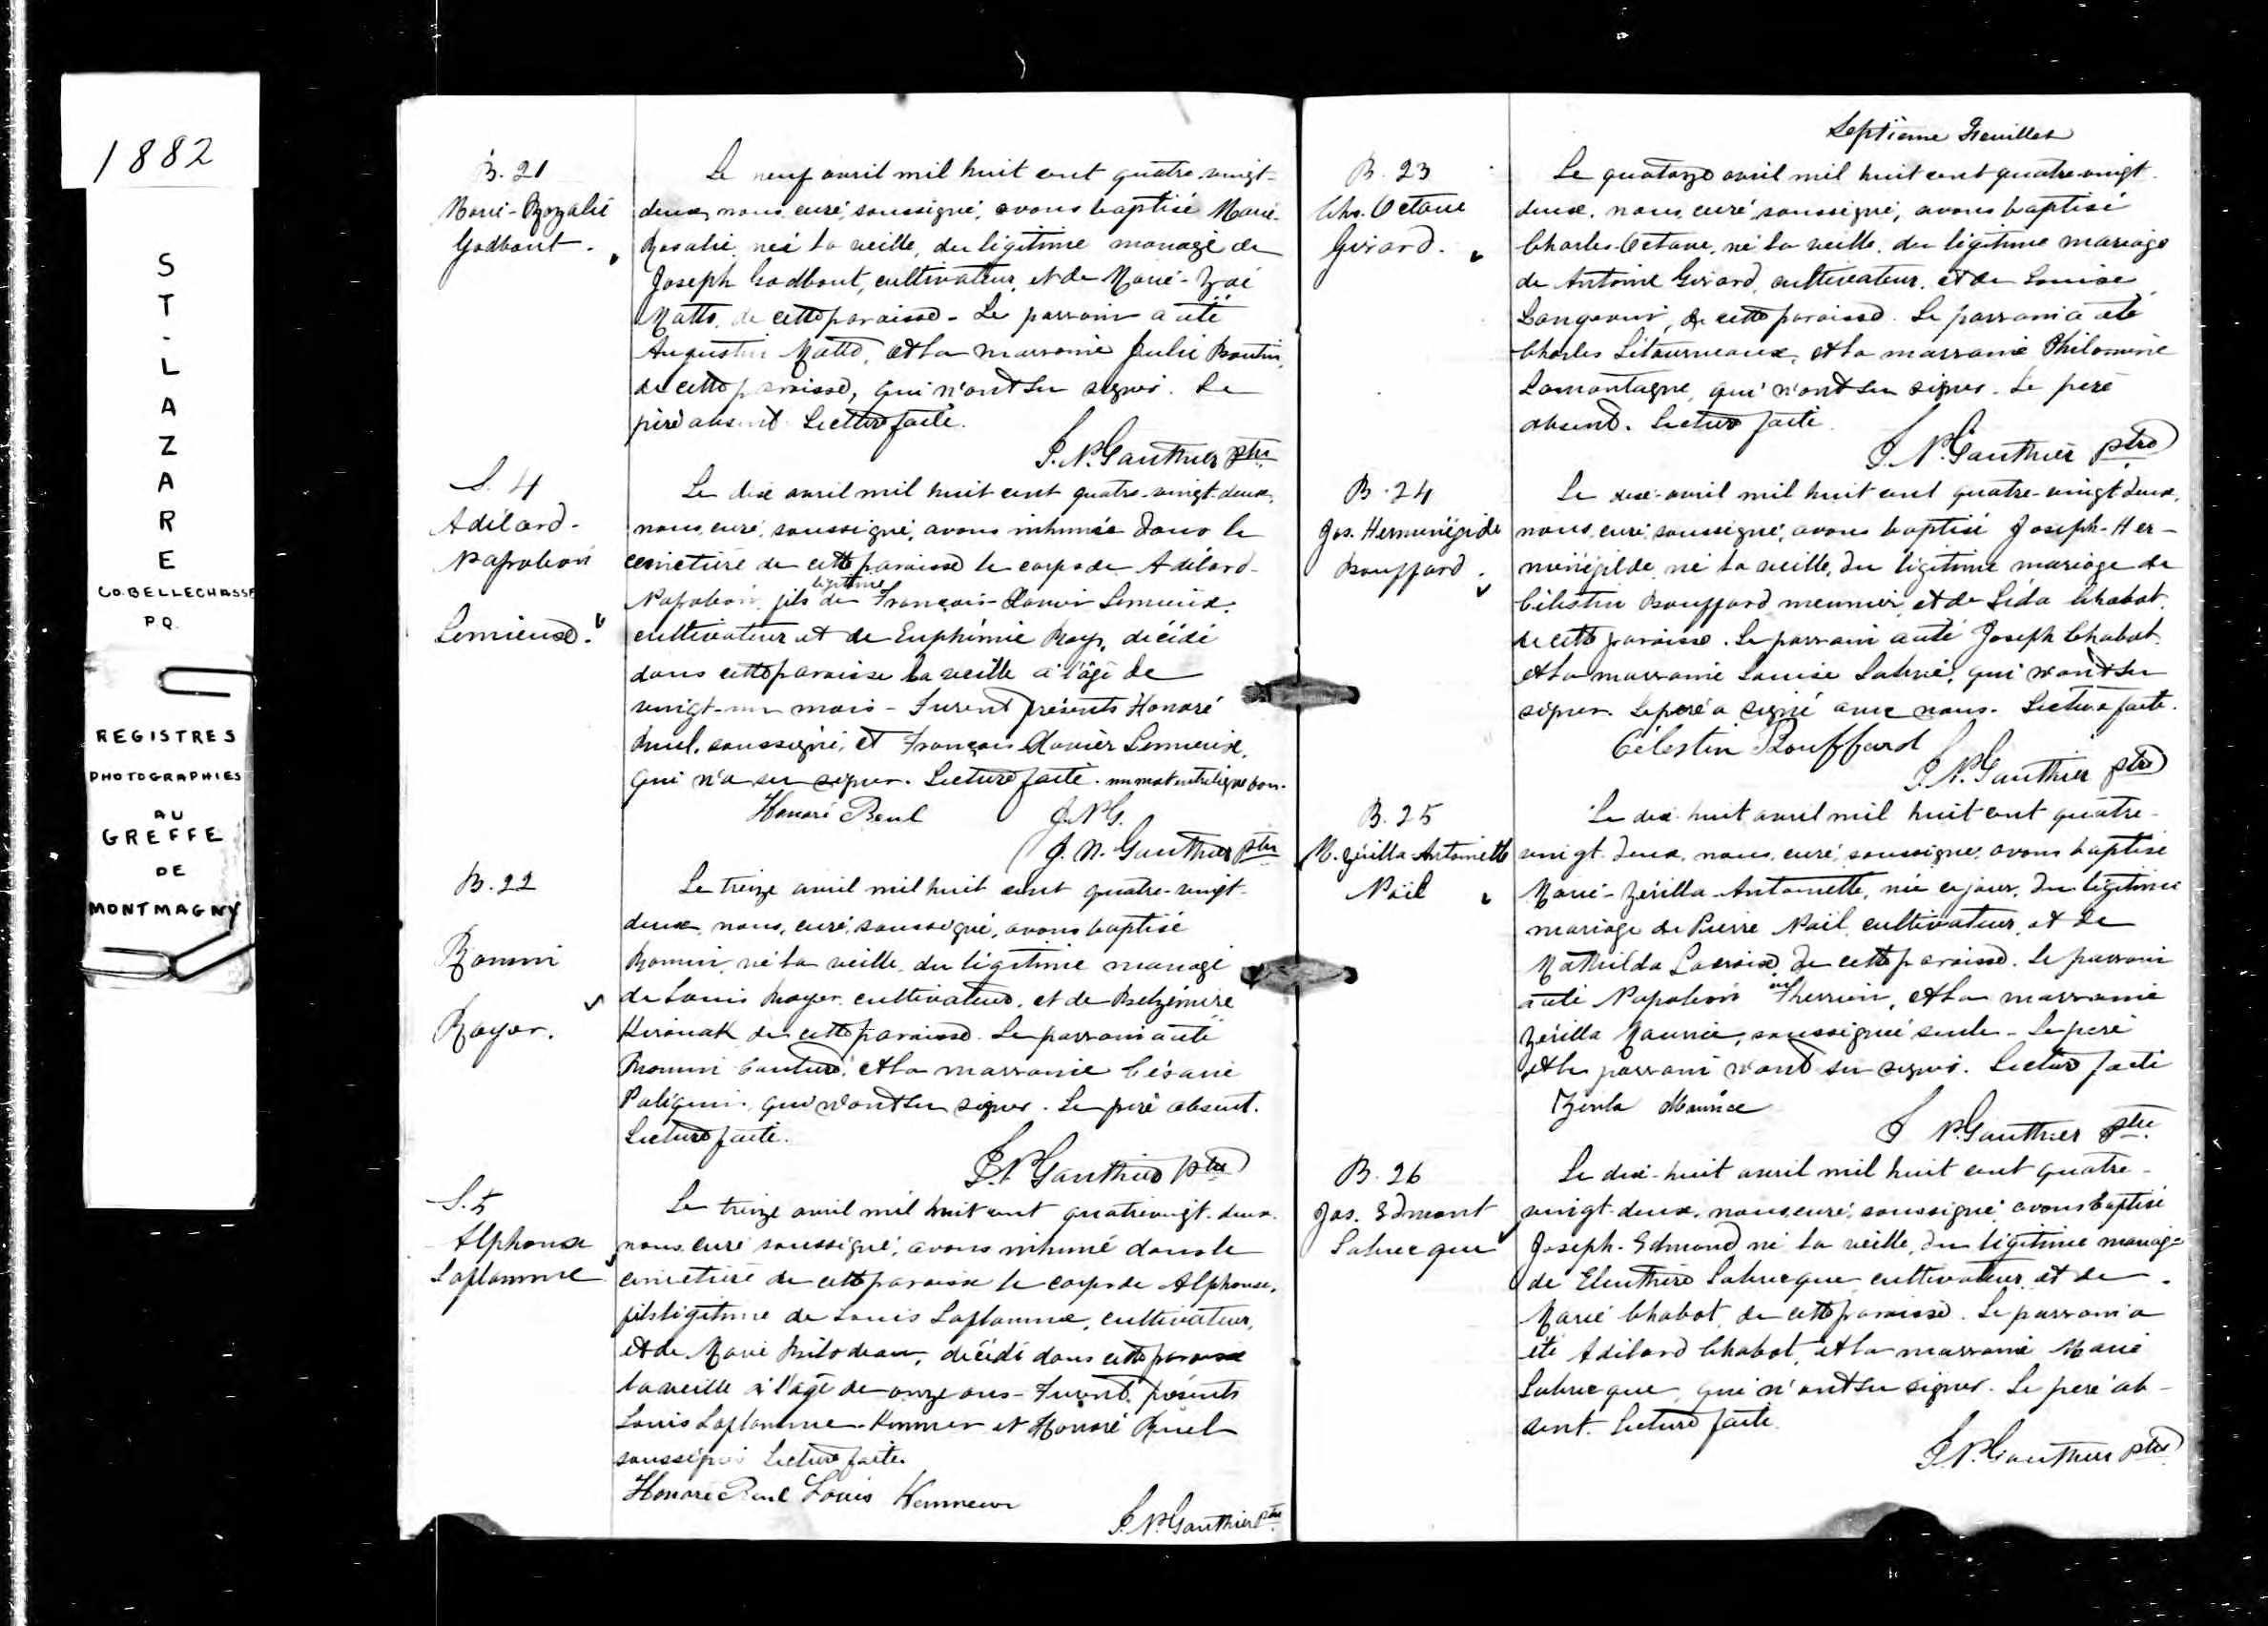 1882
S
T
-
L
A
Z
A
R
E
CO. BELLECHASSE
P.Q.
REGISTRES
PHOTOGRAPHIES
AU
GREFFE
DE
MONTMAGNY
B. 21
Marie-Rozalie
Godbout.
Le neuf avril mil huit cent quatre-vingt-
deux, nous, curé, soussigné, avons baptisé Marie-
Rosalie, née la veille, du légitime mariage de
Joseph Godbout, cultivateur, et de Marie-Zoé
Matte, de cette paroisse - Le parrain a été
Augustin Matte, et la marraine Julie Boutin,
de cette paroisse, qui n'ont su signer. Le
père absent. Lecture faite.
J. N. Gauthier ptre
S. 4
Adélard-
Napoléon
Lemieux.
Le dix avril mil huit cent quatre-vingt-deux,
nous, curé, soussigné, avons inhumé dans le
cimetière de cette paroisse le corps de Adélard-
légitime
Napoléon, fils de François-Xavier Lemieux,
cultivateur et de Euphémie Roy, décédé
dans cette paroisse la veille à l'âge de
vingt-un mois - Furent présents Honoré
Ruel, soussigné, et François-Xavier Lemieux,
qui n'a su signer. Lecture faite. un mot entre ligne bon.
Honoré Ruel J. N. G.
J. N. Gauthier ptre
B. 22
Romin
Royer.
Le treize avril mil huit cent quatre-vingt-
deux, nous, curé, soussigné, avons baptisé
Romin, né la veille, du légitime mariage
de Louis Royer, cultivateur, et de Belzémire
Kirouak de cette paroisse. Le parrain a été
Romin Couture, et la marraine Césarie
qui n'ont su signer. Le père absent.
Lecture faite.
J. N. Gauthier ptre
S. 5
Alphonse
Laflamme
Le treize avril mil huit cent quatre vingt-deux,
nous, curé soussigné, avons inhumé dans le
cimetière de cette paroisse le corps de Alphonse,
fils légitime de Louis Laflamme, cultivateur,
et de Marie Bilodeau, décédé dans cette paroisse
la veille à l'âge de onze ans - Furent présents
Louis Laflamme-Kemner et Honoré Ruel
soussignés Lecture faite.
Honoré Ruel Louis Kemneur
J. N. Gauthier ptre
Septième Feuillet
B. 23
Chs. Octave
Girard.
Le quatorze avril mil huit cent quatre-vingt-
deux, nous, curé, soussigné, avons baptisé
Charles-Octave, né la veille, du légitime mariage
de Antoine Girard, cultivateur, et de Louise
Langevin, de cette paroisse. Le parrain a été
Charles Létourneaux, et la marraine Philomène
Lamontagne, qui n'ont su signer. Le père
absent. Lecture faite.
J. N. Gauthier ptre
B. 24
Jos. Herménégilde
Bouffard.
Le dix-avril mil huit cent quatre-vingt deux,
nous, curé, soussigné, avons baptisé Joseph-Her-
ménégilde, né la veille, du légitime mariage de
Célestin Bouffard meunier, et de Léda Chabot,
de cette paroisse. Le parrain a été Joseph Chabot,
et la marraine Louise Labrie, qui n'ont su
signer. Le père a signé avec nous. Lecture faite.
Célestin Bouffard
J. N. Gauthier ptre
B. 25
M. Zérilla Antoinette
Noël
Le dix-huit avril mil huit cent quatre-
vingt-deux, nous, curé, soussigné, avons baptisé
Marie-Zérilla-Antoinette, née ce jour, du légitime
mariage de Pierre Noël, cultivateur, et de
Mathilda Lacroix, de cette paroisse. Le parrain
a été Napoléon Therrien, et la marraine
Zérilla Maurice, soussignée seule - Le père
et le parrain n'ont su signer. Lecture faite
Zerila Maurice
J. N. Gauthier ptre
B. 26
Jos. Edmont
Labrecque
Le dix-huit avril mil huit cent quatre-
vingt-deux, nous, curé, soussigné, avons baptisé
Joseph-Edmond né la veille, du légitime mariage
de Eleuthère Labrecque cultivateur, et de
Marie Chabot, de cette paroisse. Le parrain a
été Adélard Chabot, et la marraine Marie
Labrecque, qui n'ont su signer. Le père ab-
sent. Lecture faite.
J. N. Gauthier ptre